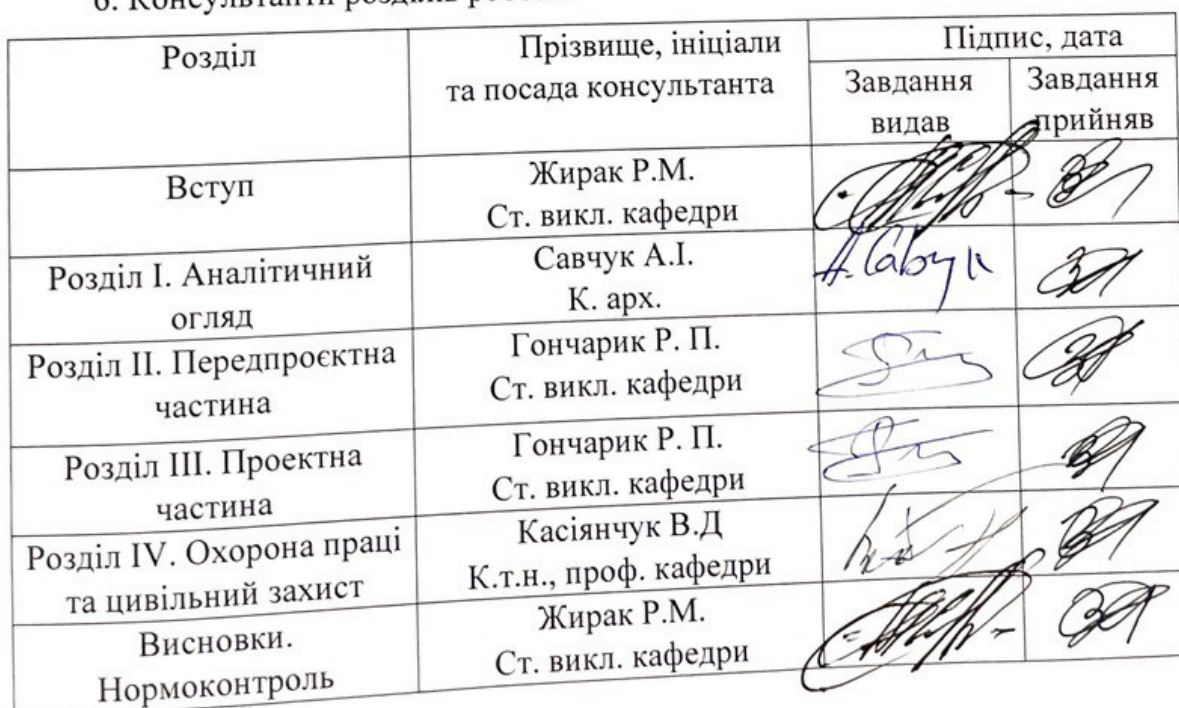 6. Консультанти розділів
Розділ
Прізвище, ініціали
та посада консультанта
Підпис, дата
Завдання
видав
Завдання
прийняв
Вступ
Жирак Р.М.
Ст. викл. кафедри
Розділ І. Аналітичний
огляд
Савчук А.І.
К. арх.
А. Савчук
Розділ ІІ. Передпроєктна
частина
Гончарик Р. П.
Ст. викл. кафедри
Розділ ІІІ. Проектна
частина
Гончарик Р. П.
Ст. викл. кафедри
Розділ IV. Охорона праці
та цивільний захист
Касіянчук В.Д
К.т.н., проф. кафедри
Висновки.
Нормоконтроль
Жирак Р.М.
Ст. викл. кафедри